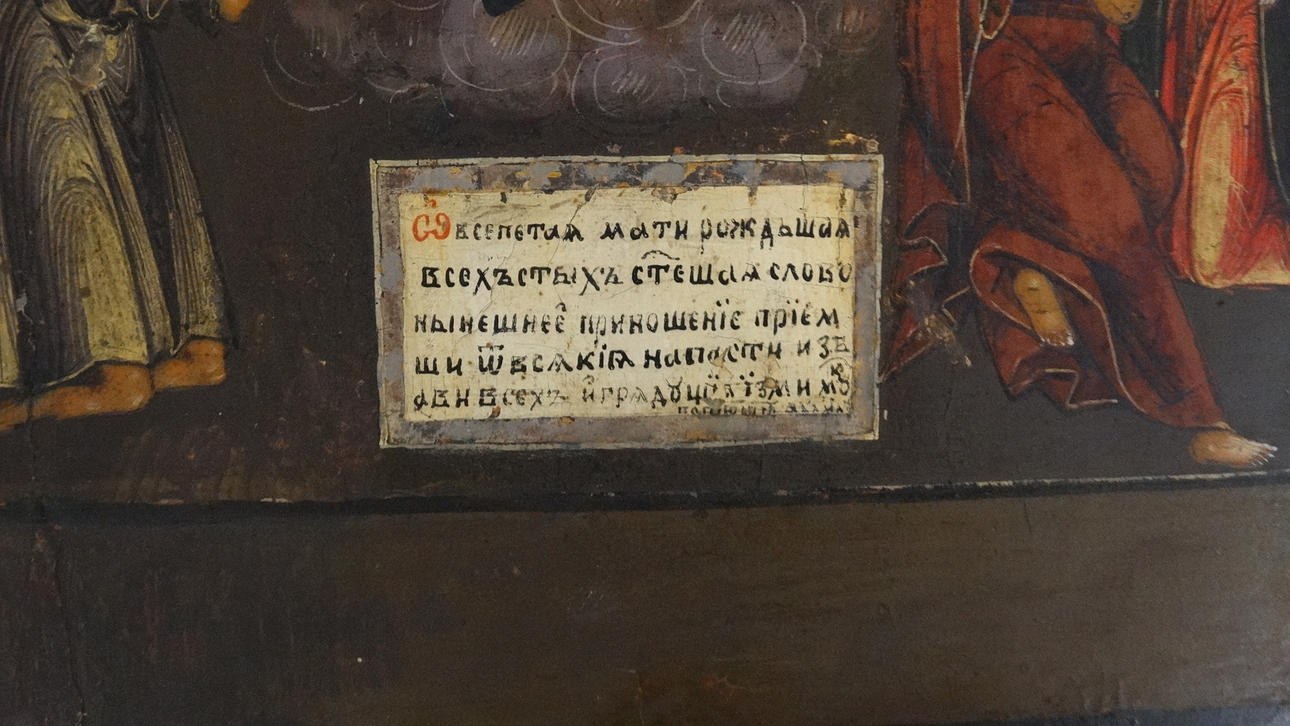 Ѽ всепетая мати рождьшая
всехъ стыхъ стешая слово
нынешнее приношенїе прїем
ши ѿ всякїя напасти изб
ави всехъ и грядущїя измимꙋ